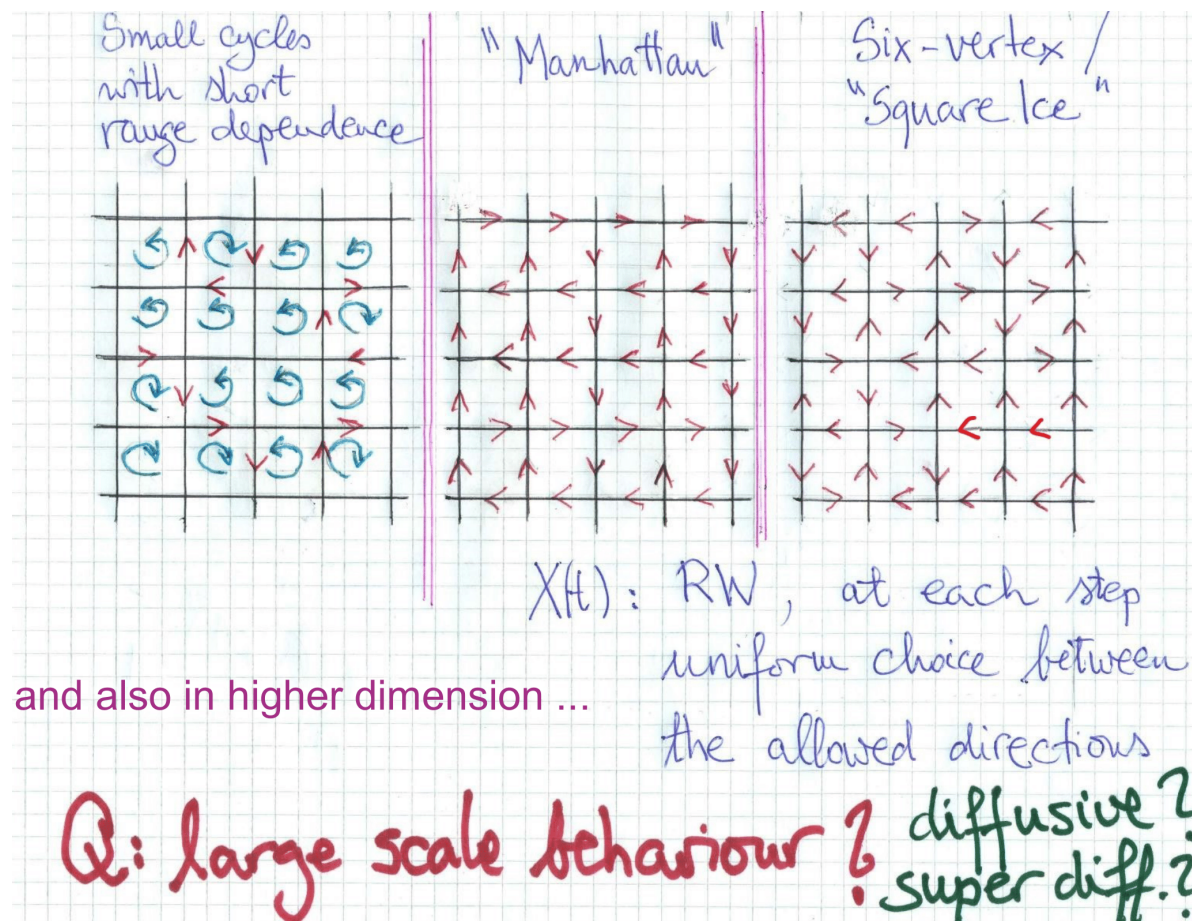 Small cycles
with short
range dependence
"Manhattan"
Six-vertex /
"Square Ice"
X(t): RW, at each step
uniform choice between
the allowed directions
and also in higher dimension ...
Q: large scale behaviour ?
diffusive?
super diff.?